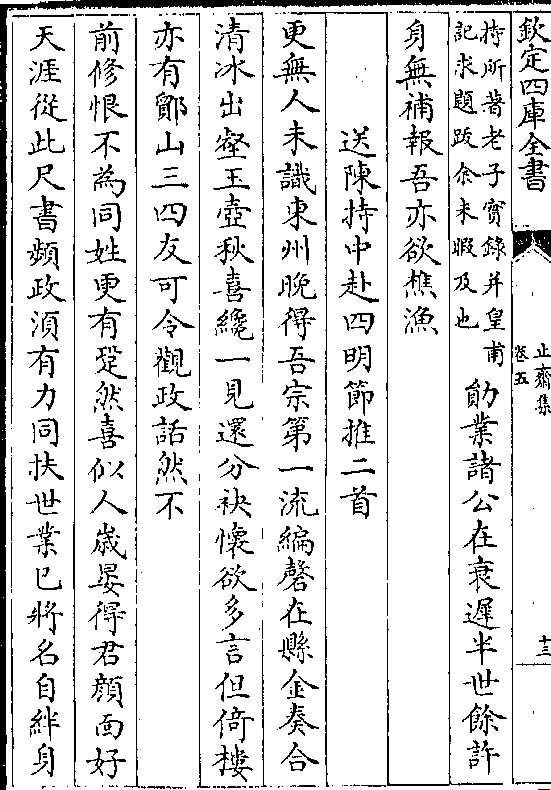 欽定四庫全書
止齋集
卷五
十三
持所著老子實錄并皇甫
記求題跋余未暇及也
勛業諸公在衰遲半世餘許
身無補報吾亦欲樵漁
送陳持中赴四明節推二首
更無人未識東州晚得吾宗第一流編磬在縣金奏合
清冰出壑玉壺秋喜纔一見還分袂懷欲多言但倚樓
亦有鄮山三四友可令觀政話然不
前修恨不為同姓更有跫然喜似人歲晏得君顔面好
天涯從此尺書頻政湏有力同扶世業已將名自絆身